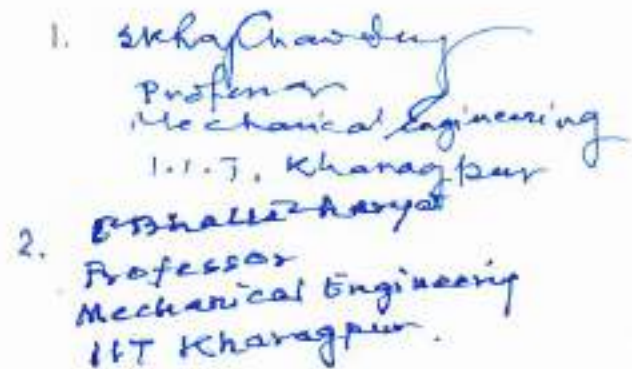 1. SKRayChawdury
Professor
Mechanical Engineering
I.I.T. Kharagpur
2. Bhattacharya
Professor
Mechanical Engineering
IIT Kharagpur.